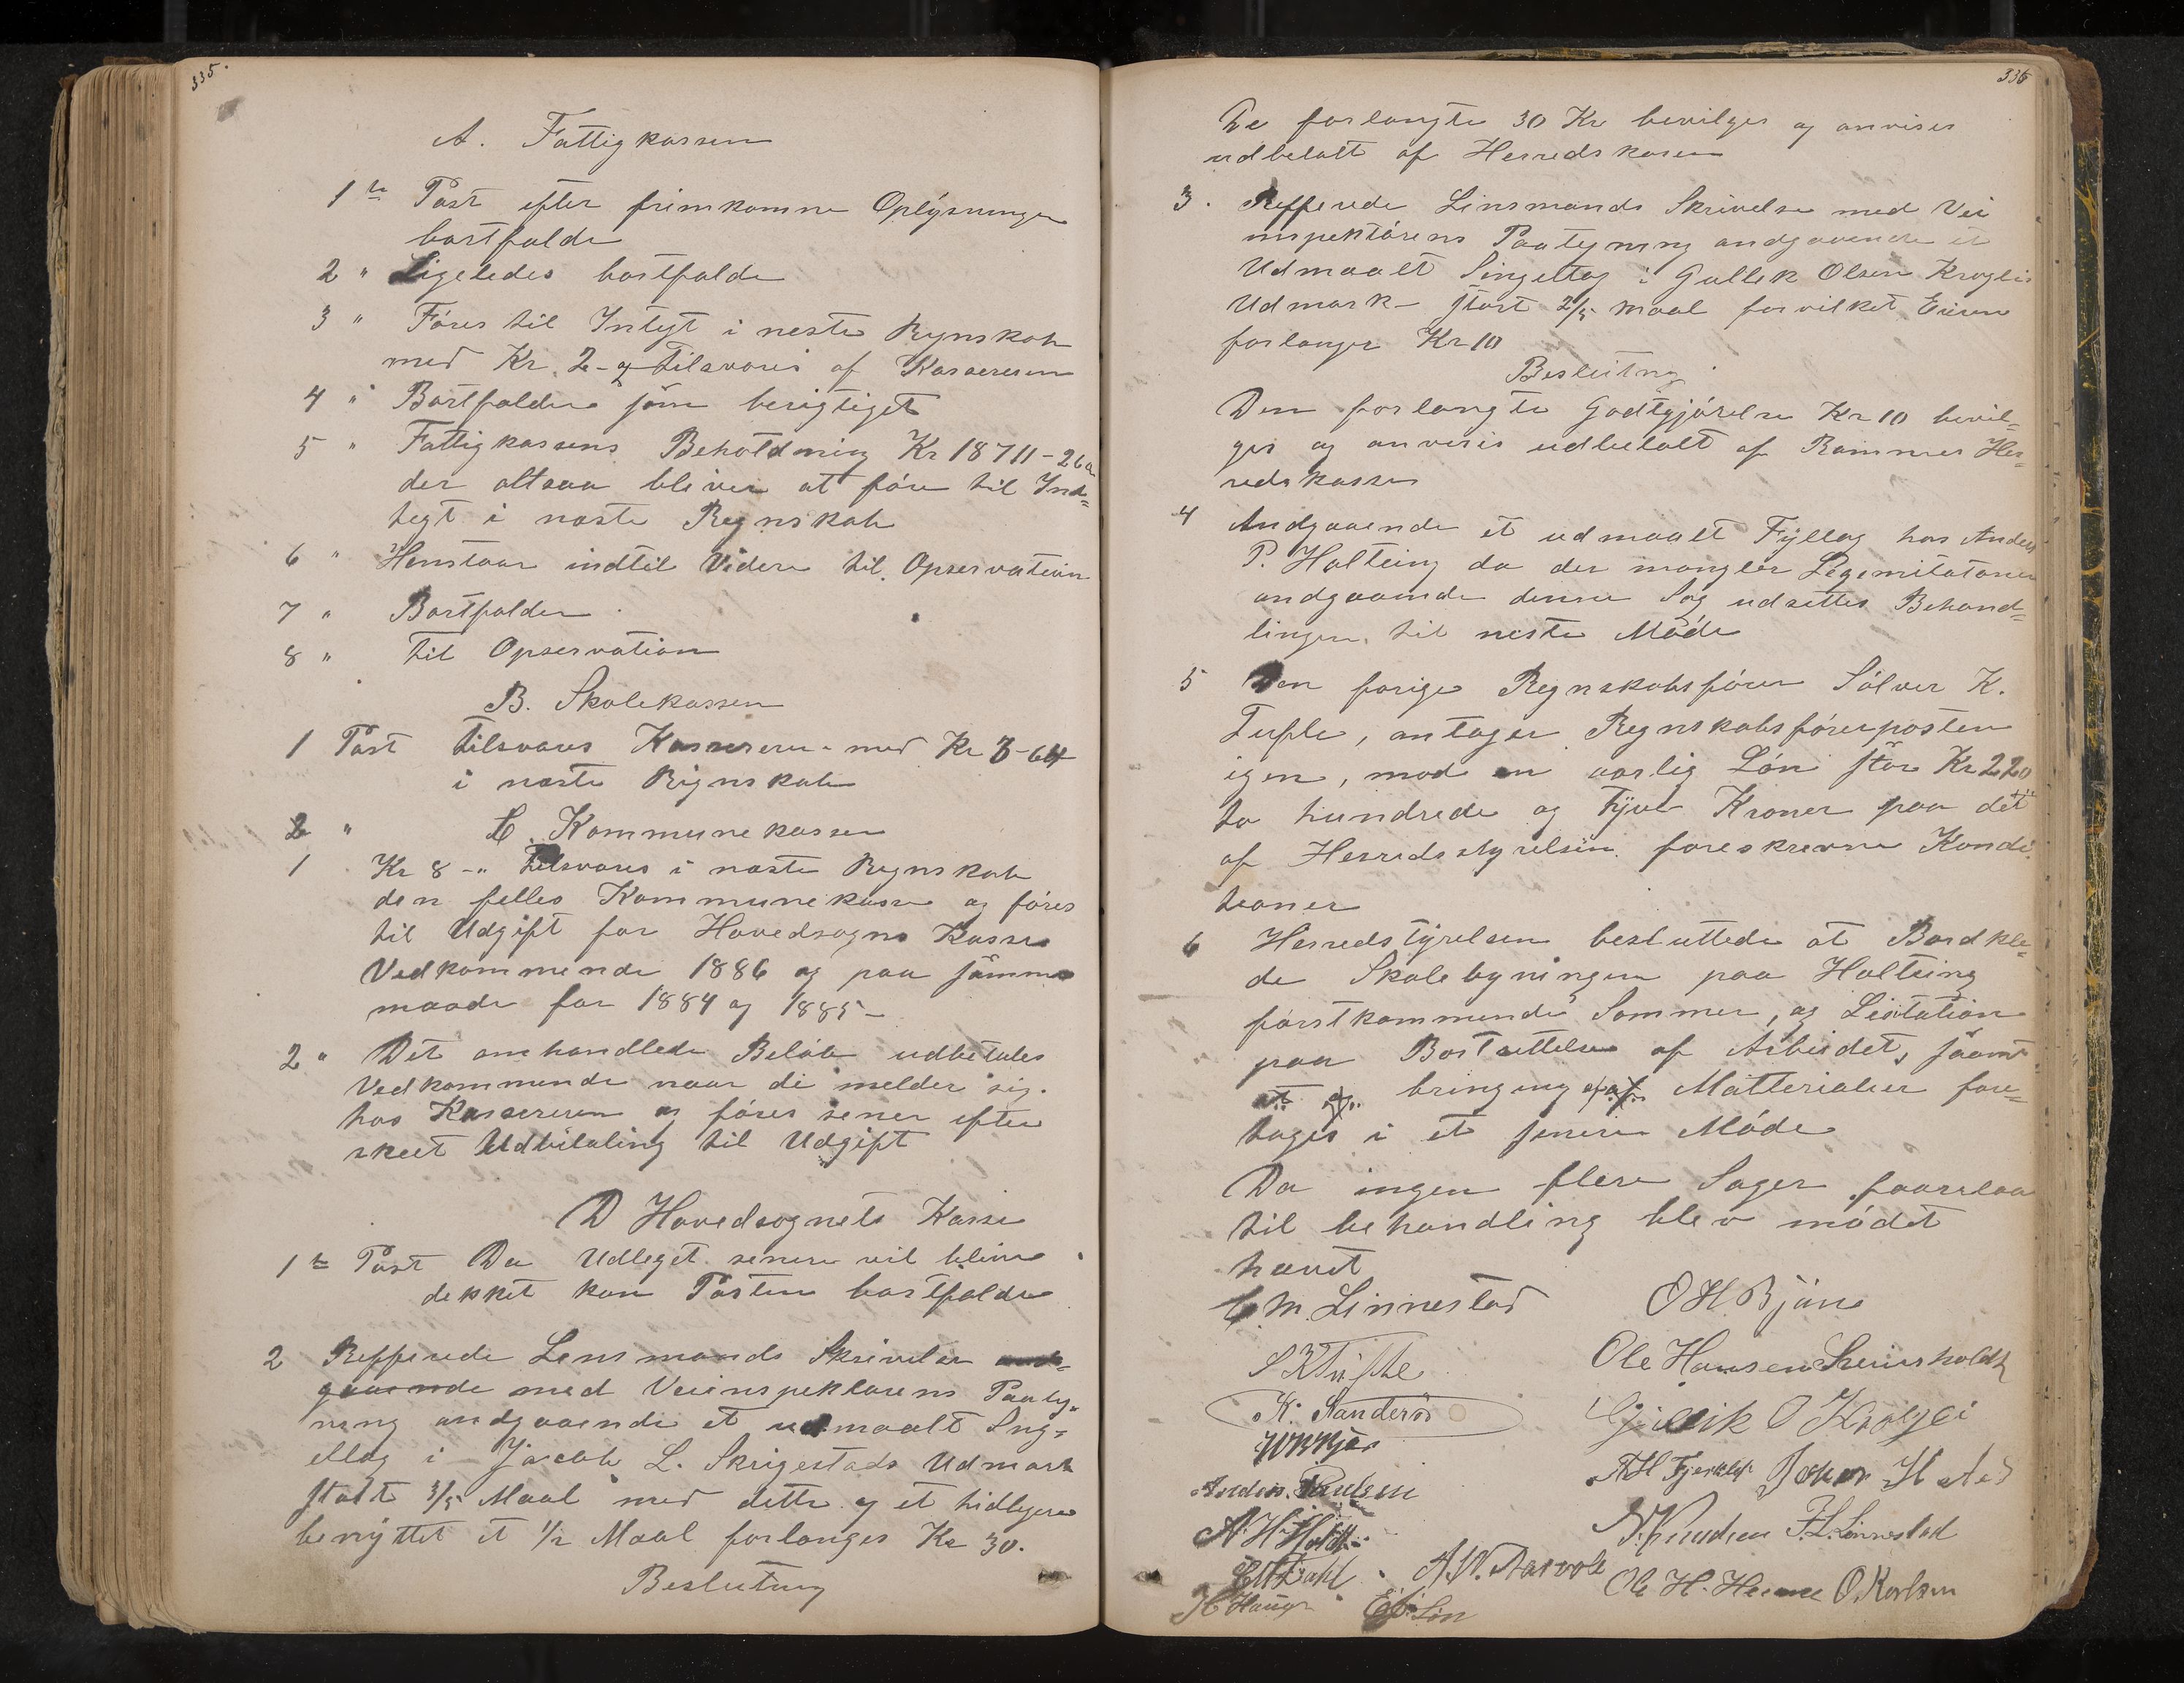 335.
A. Fattigkassen
1te Post efter frimkomne Oplysninger
bortfalder
2 " Ligeledes bortfalde
3 " Föres til Integt i neste Regnskab
med Kr. 2 - og tilsvares af Kassereren
4 " Bortfalder som berigtiget
5 " Fattigkassens Beholdning Kr 18711-26
der altsaa bliver at före til Ind=
tegt i næste Regnskab
6 " Henstaar indtil Videre til Opservation
7 " Bortfalder
8 " til Opservation
B. Skolekassen
1 Post tilsvares Kassereren med Kr 3-64
i næste Regnskab
2 " C. Kommunekassen
1 Kr 8 - " tilsvares i næste Regnskab
den felles Kommunekasse og föres
til Udgift for Hovedsogns Kasse
Vedkommende 1886 og paa samme
maade for 1884 og 1885 -
2 " Det omhandlede Belöb udbetales
Vedkommende naar de melder sig
hos Kassereren og föres sener efter
skeet Udbitaling til Udgift
D Hovedsognets Kasse
1te Post Da Udleget senere vil blive
dekket kan Posten bortfalde
2 Refferede Lensmands Skrivelse and=
gaaende med Veiinspektørens Paateg=
ning andgaaende et udmaalt Sing=
eltag i Jacob L. Skrigestads Udmark
stort 3/5 Maal med dette og et tidligere
benyttet et 1/2 Maal forlanges Kr 30.
Beslutning
336
De forlangte 30 Kr bevilges og anvises
udbetalt af Herredskasen
3. Refferede Linsmands Skrivelse med Vei
inspektörens Paategning andgaaende et
Udmaalt Singeltag i Gullek Olsen Kroglis
Udmark - stort 2/5 Maal for vilket Eieren
forlanger Kr 10
Beslutng
Den forlangte Godtgjörelse Kr 10 bevil=
ges og anvises udbetalt af Ramnes Her=
redskasse
4 Andgaaende et udmaalt Fyllag hos Anders
P. Holteing da der mangler Legemitatoner
andgaaende denne Sag udsettes Behand=
lingen til neste Möde
5 Den forige Regnskabsförer Sölver K.
Tufte, antager Regnskabsförerposten
igen, mod en aarlig Lön stor Kr 220
to hundrede og tyve Kroner paa det
af Herredsstyrelsen foreskrevne Kondi
tioner
6 Herredstyrelsen besluttede at Bordkle=
de Skolebyningen paa Holteing
förstkommende Sommer, og Lisitation
paa Bortsettelse af Arbeidet, saamt
at og bringing af Matterialier fore=
tages i et senere Möde
Da ingen flere Sager foorelaa
til behandling blev mödet
hævet
C. M. Linnestad O H Bjüne
S K Tufte Ole Hansen
K. Sanderöd Gullik O Krogli
Anders Paulsen
A. H. Holdt N. Knudsen F. L. Linnestad
Dahl A. N. Aarvold Ole H. O. Karlsen
H Hauge E. Lin